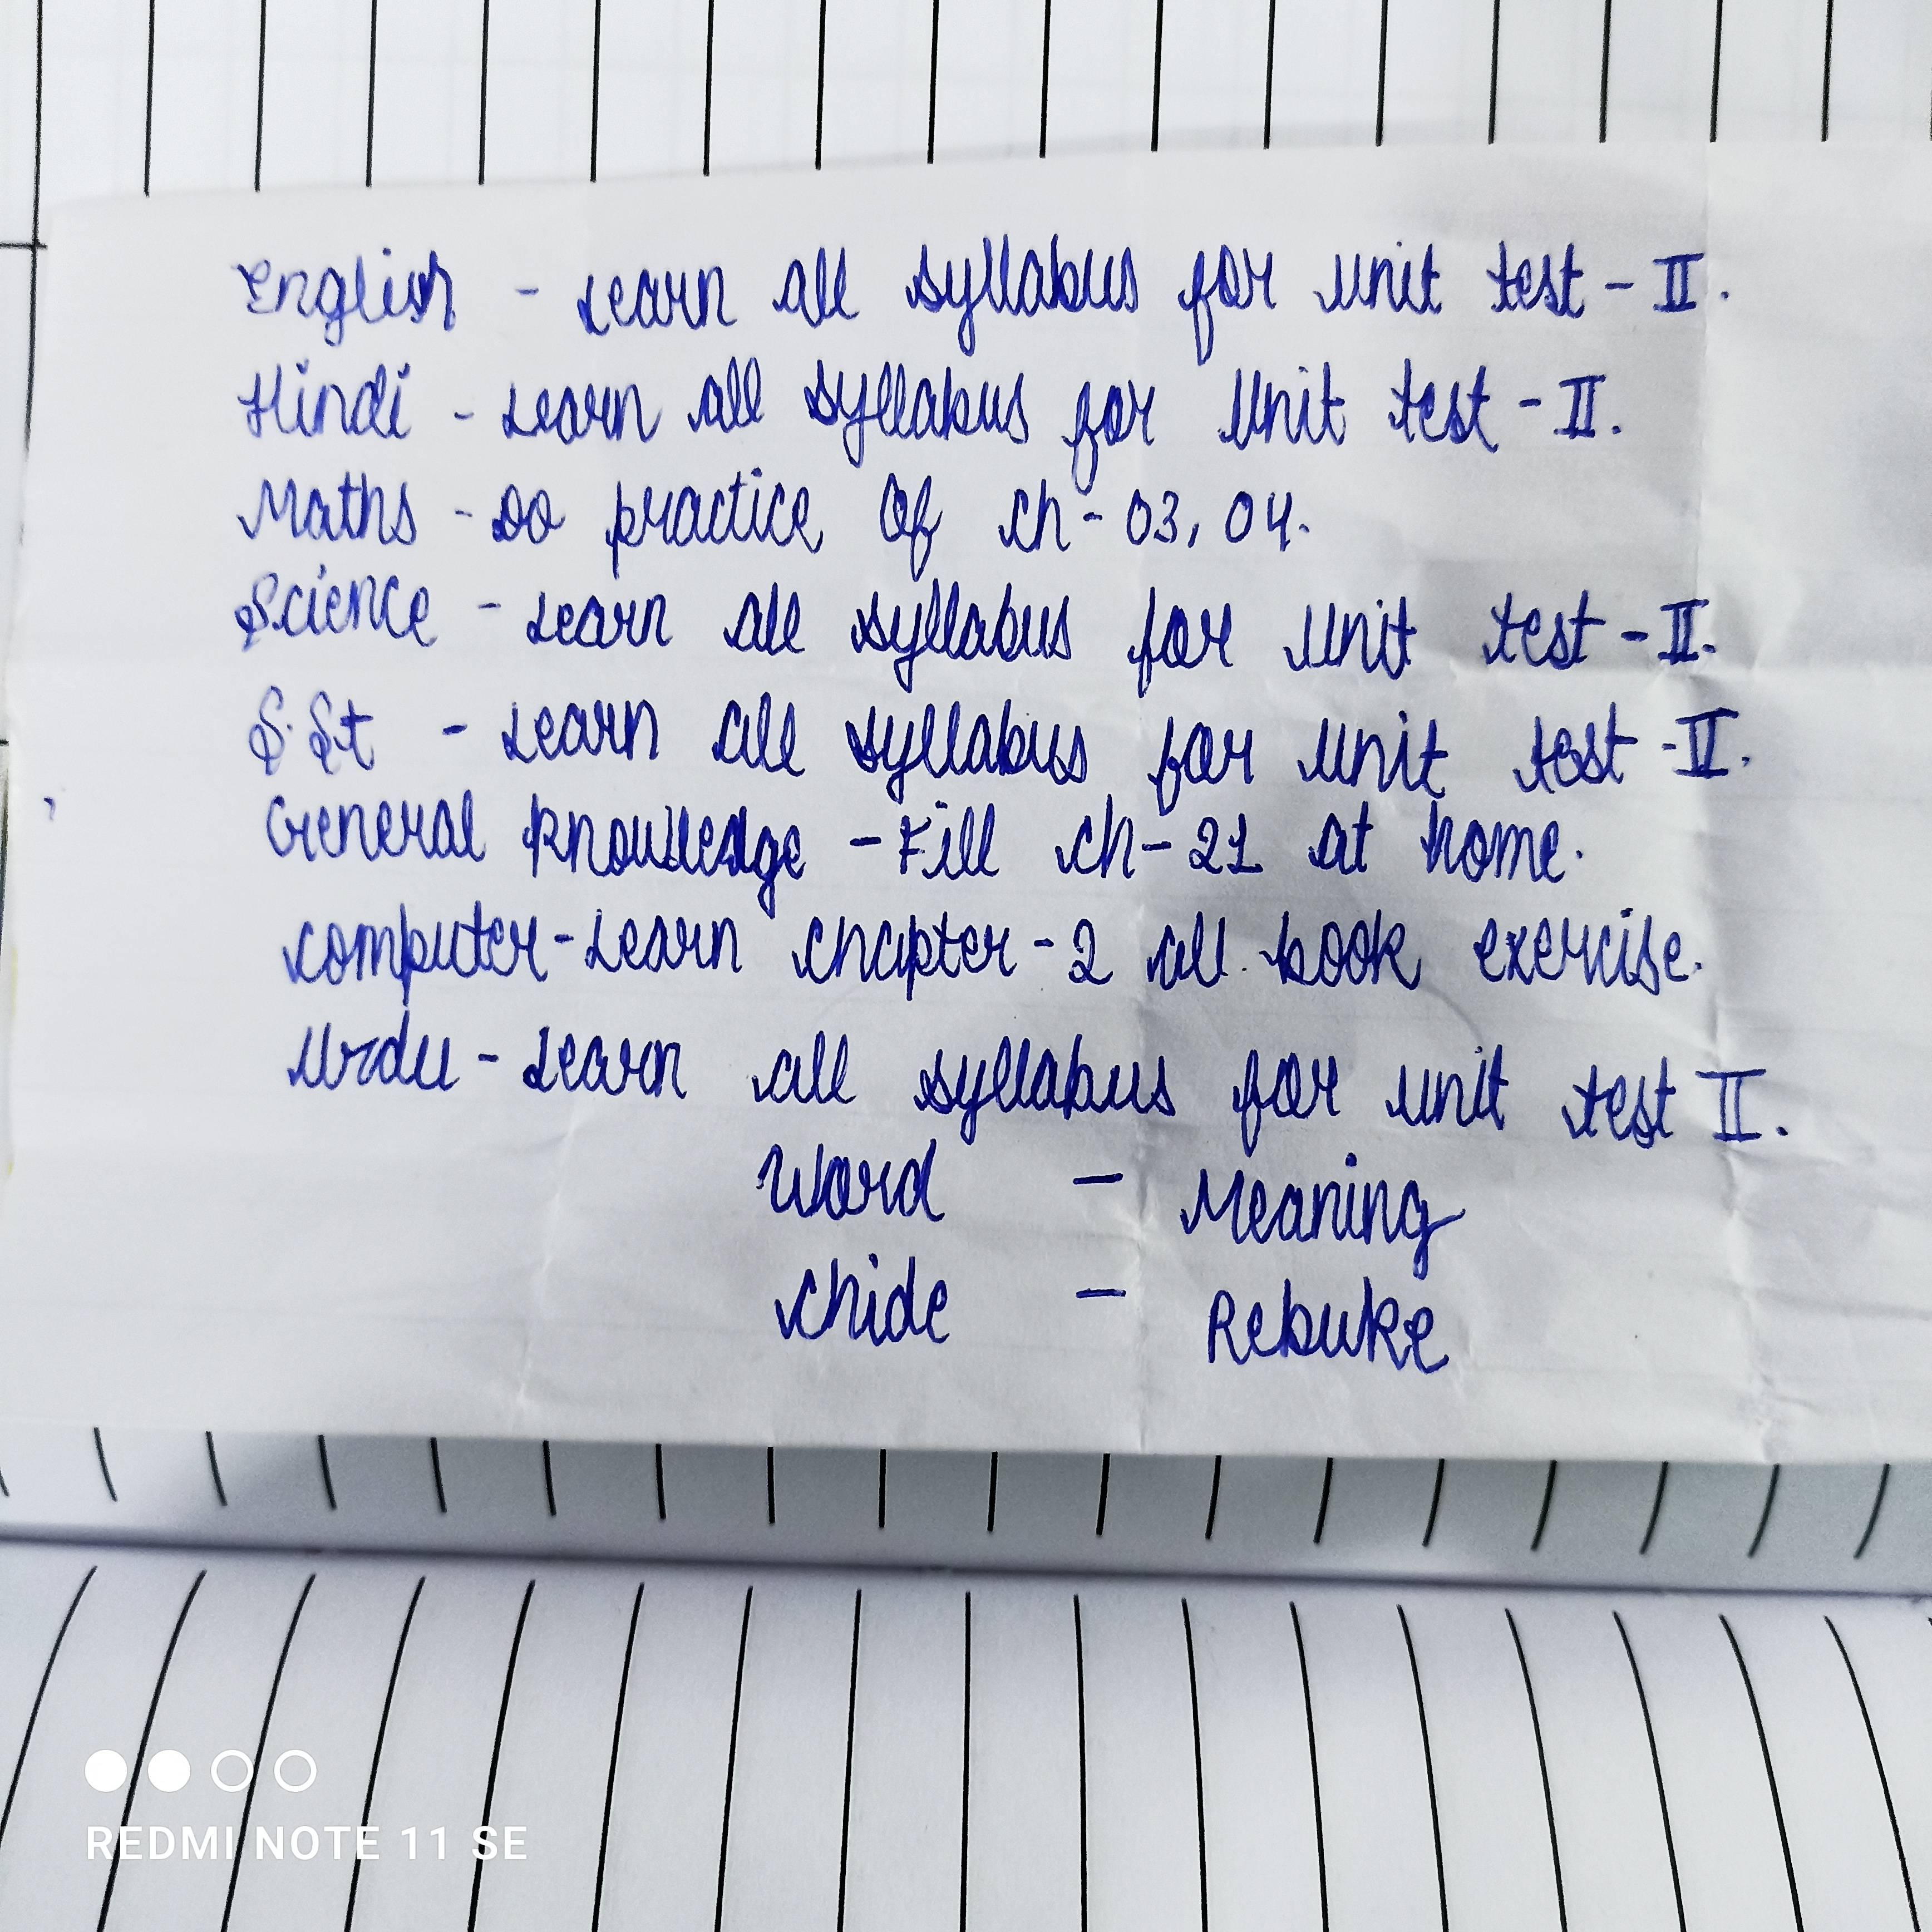 English - Learn all syllabus for unit test - II.
Hindi - Learn all syllabus for Unit test - II.
Maths - Do practice of ch - 03, 04.
Science - Learn all syllabus for unit test - II.
S.St - Learn all syllabus for unit test - II.
General Knowledge - Fill ch - 21 at home.
Computer - Learn chapter - 2 all book exercise.
Urdu - Learn all syllabus for unit test II.
Word - Meaning
Chide - Rebuke
REDMI NOTE 11 SE